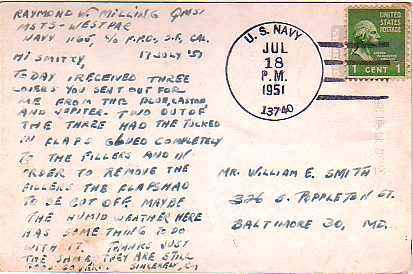 RAYMOND V. MILLING QMS1
MSTS-WESTPAC
NAVY 1165, C/O F.P.O., S.F., CAL.
17 JULY '51
HI SMITTY,
TODAY I RECEIVED THREE
COVERS YOU SENT OUT FOR
ME FROM THE ALUR, CASTOR
AND JUPITER. TWO OUT OF
THE THREE HAD THE TUCKED
IN FLAPS GLUED COMPLETELY
TO THE FILLERS AND IN
ORDER TO REMOVE THE
FILLERS THE FLAPS HAD
TO BE CUT OFF. MAYBE
THE HUMID WEATHER HERE
HAS SOMETHING TO DO
WITH IT. THANKS JUST
THE SAME, THEY ARE STILL
GOOD COVERS. SINCERELY,
U.S. NAVY
JUL
18
P.M.
1951
13740
UNITED
STATES
POSTAGE
1 CENT 1
MR. WILLIAM E. SMITH
326 S. POPPLETON ST.
BALTIMORE 30, MD.